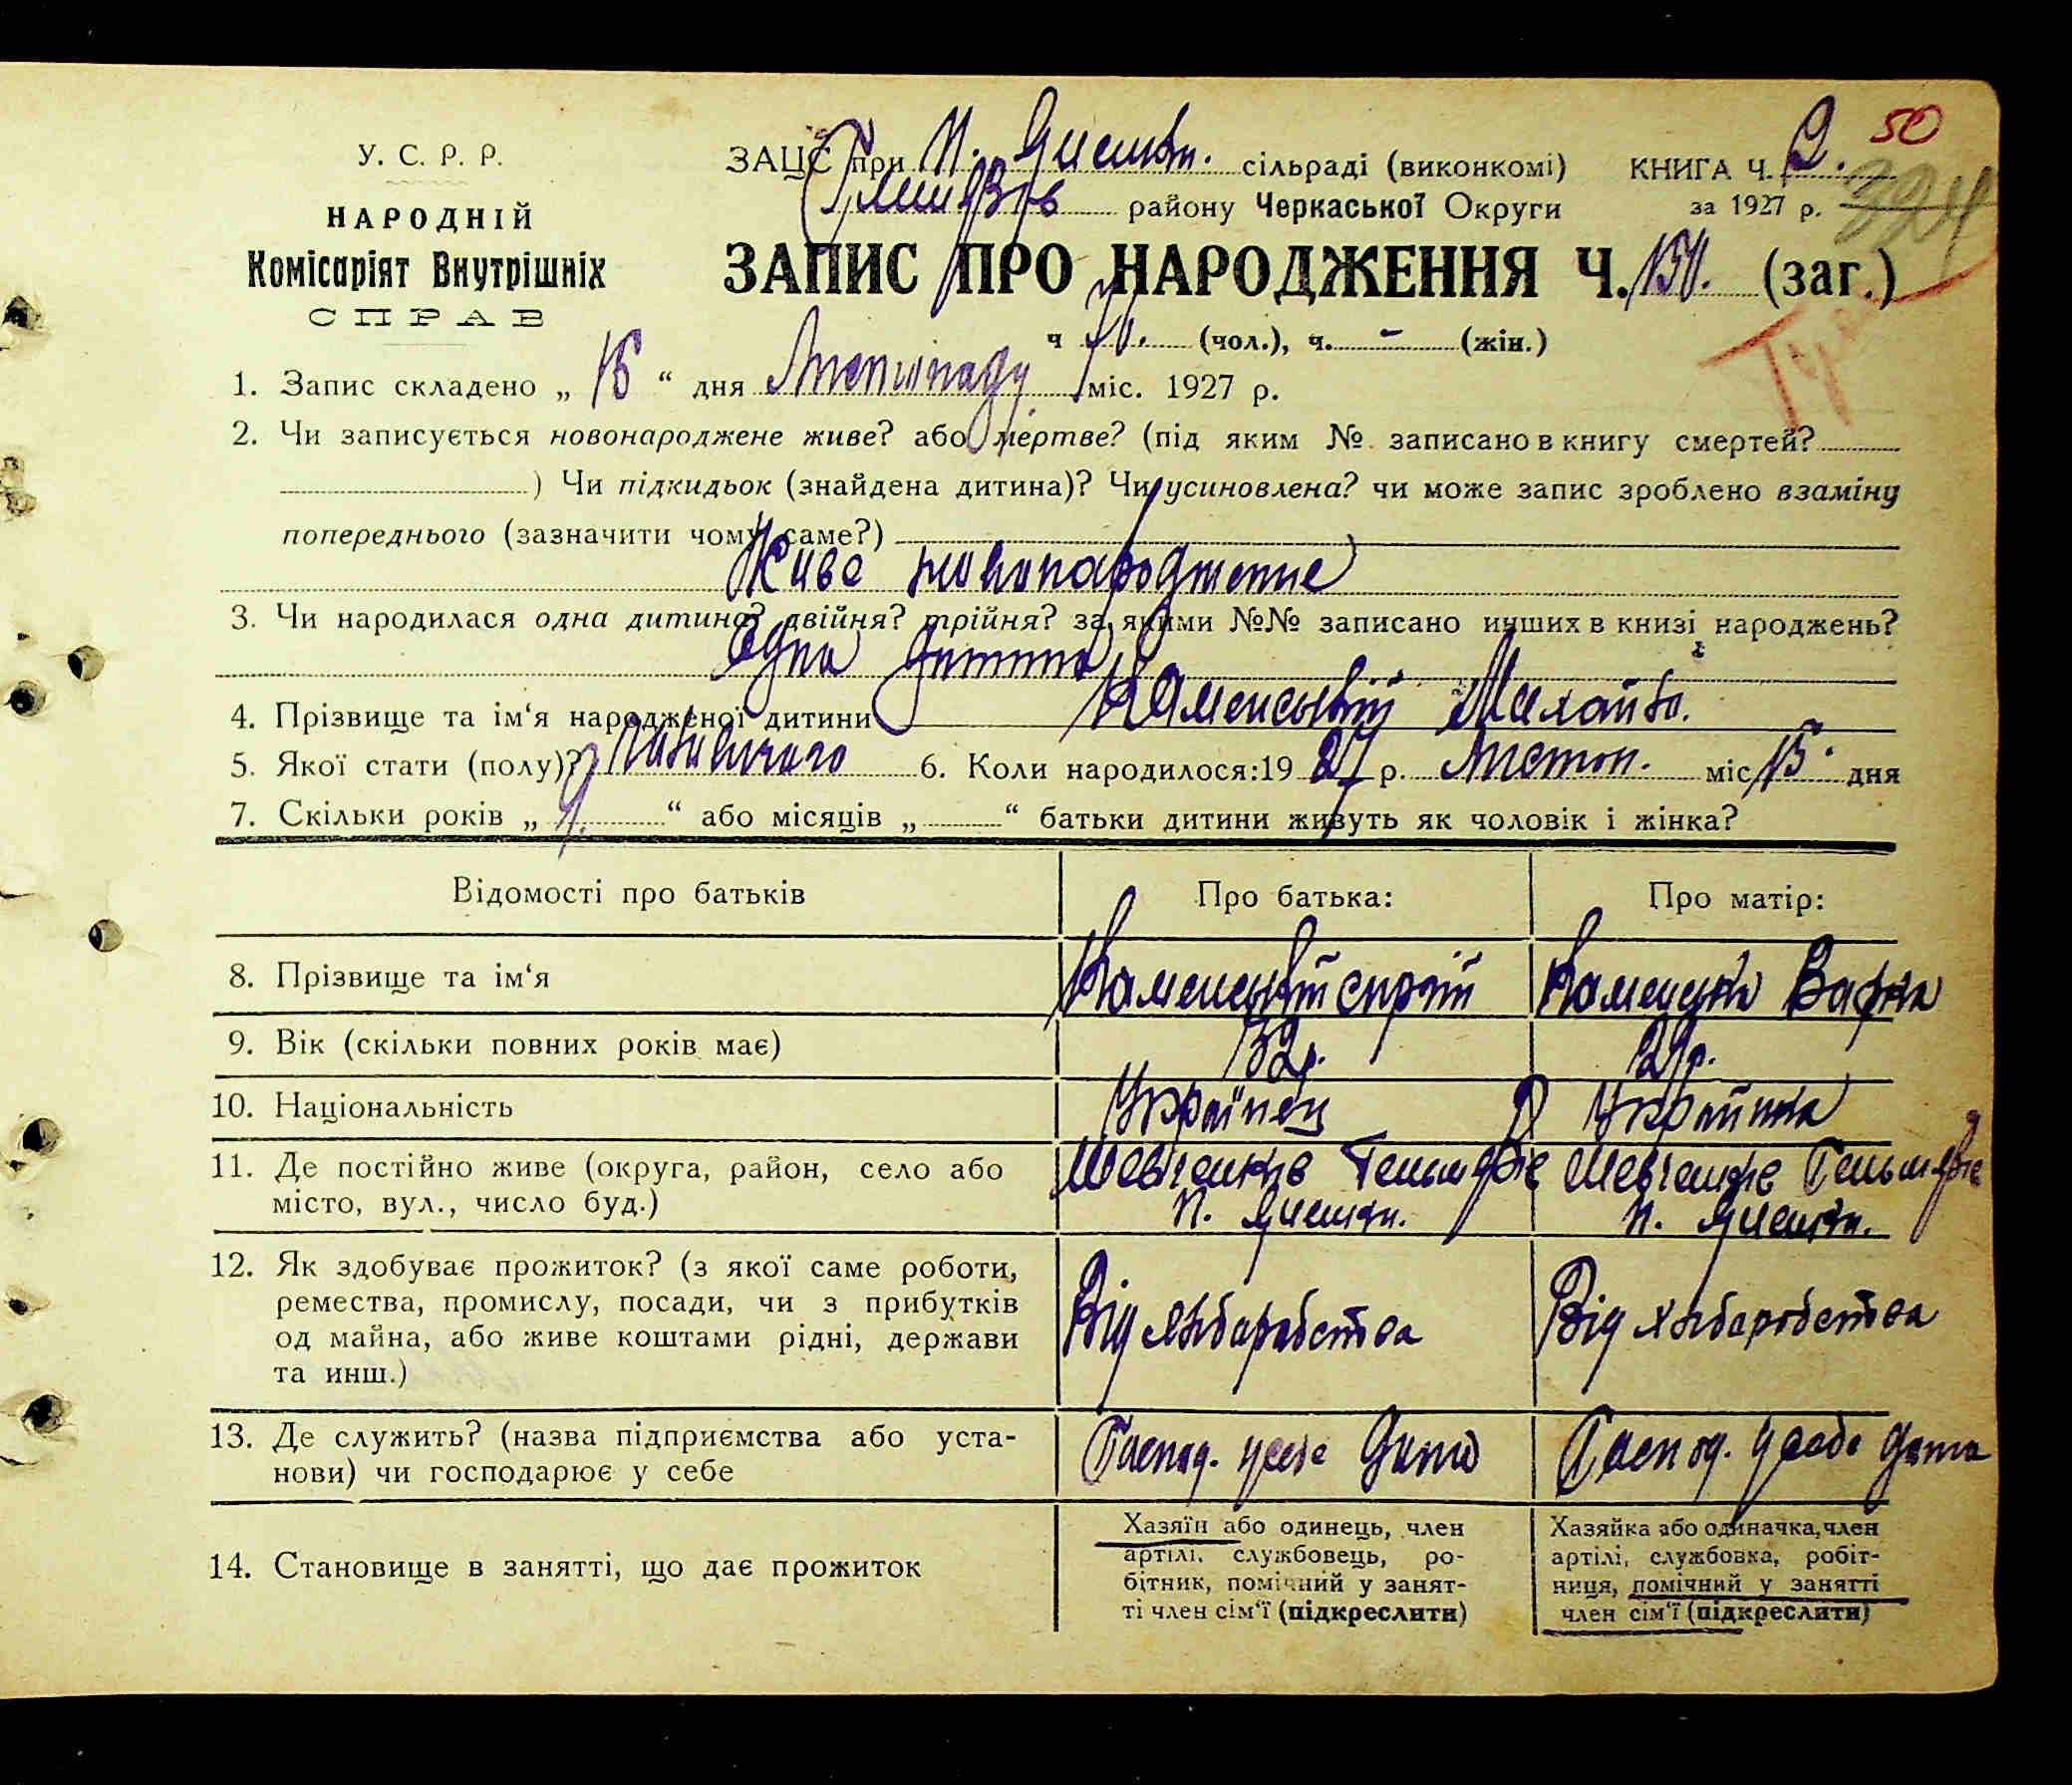 50
У. С. Р. Р.
НАРОДНІЙ
Комісаріят Внутрішніх
СПРАВ
ЗАЦС при П. сільраді (виконкомі) КНИГА Ч. 2.
району Черкаської Округи за 1927 р. 324
ЗАПИС ПРО НАРОДЖЕННЯ Ч. (заг.)
ч 76. (чол.), ч. - (жін.)
1. Запис складено „ 18 “ дня Листопаду міс. 1927 р.
2. Чи записується новонароджене живе? або мертве? (під яким № записано в книгу смертей?
) Чи підкидьок (знайдена дитина)? Чи усиновлена? чи може запис зроблено взаміну
попереднього (зазначити чому саме?)
Живе новонароджене
3. Чи народилася одна дитина? двійня? трійня? за якими №№ записано инших в книзі народжень?
Одна дитина
4. Прізвище та ім‘я народженої дитини Каменський Михайло.
5. Якої стати (полу)? 6. Коли народилося: 19 27 р. Листоп. міс. 15 дня
7. Скільки років „ “ або місяців „ “ батьки дитини живуть як чоловік і жінка?
Відомості про батьків Про батька: Про матір:
8. Прізвище та ім‘я Каменський Каменська
9. Вік (скільки повних років має) 32 р. 29 р.
10. Національність Українец Українка
11. Де постійно живе (округа, район, село або Шевченків Шевченків
місто, вул., число буд.) П. П.
12. Як здобуває прожиток? (з якої саме роботи,
ремества, промислу, посади, чи з прибутків
од майна, або живе коштами рідні, держави
та инш.)
Від хліборобства Від хліборобства
13. Де служить? (назва підприємства або уста-
нови) чи господарює у себе
Господ. у себе дома Господ. у себе дома
14. Становище в занятті, що дає прожиток
Хазяїн або одинець, член
артілі, службовець, ро-
бітник, помічний у занят-
ті член сім‘ї (підкреслити)
Хазяйка або одиначка, член
артілі, службовка, робіт-
ниця, помічний у занятті
член сім‘ї (підкреслити)